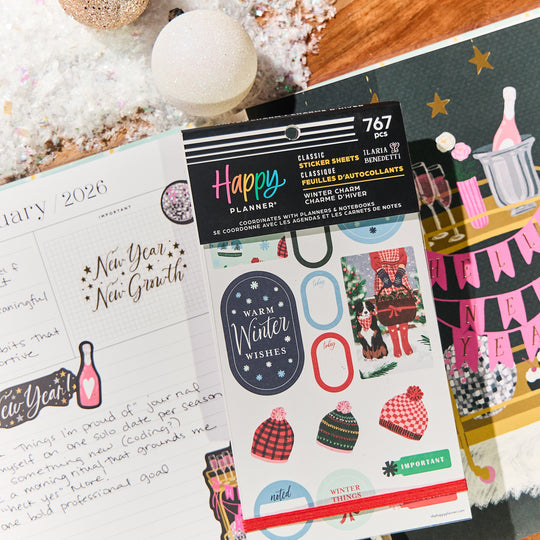 Happy
PLANNER®
767
pcs
CLASSIC
STICKER SHEETS
CLASSIQUE
FEUILLES D'AUTOCOLLANTS
ILARIA
BENEDETTI
WINTER CHARM
CHARME D'HIVER
COORDINATES WITH PLANNERS & NOTEBOOKS
SE COORDONNE AVEC LES AGENDAS ET LES CARNETS DE NOTES
WARM
Winter
WISHES
today
today
IMPORTANT
noted
WINTER
THINGS
thehappyplanner.com
uary / 2026
IMPORTANT
New Year
New Growth
New Year!
"Things I'm proud of" journal
myself on one solo date per season
something new (coding?)
a morning ritual that grounds me
"check yes" more.
one bold professional goal
HELLO
NEW
YEAR